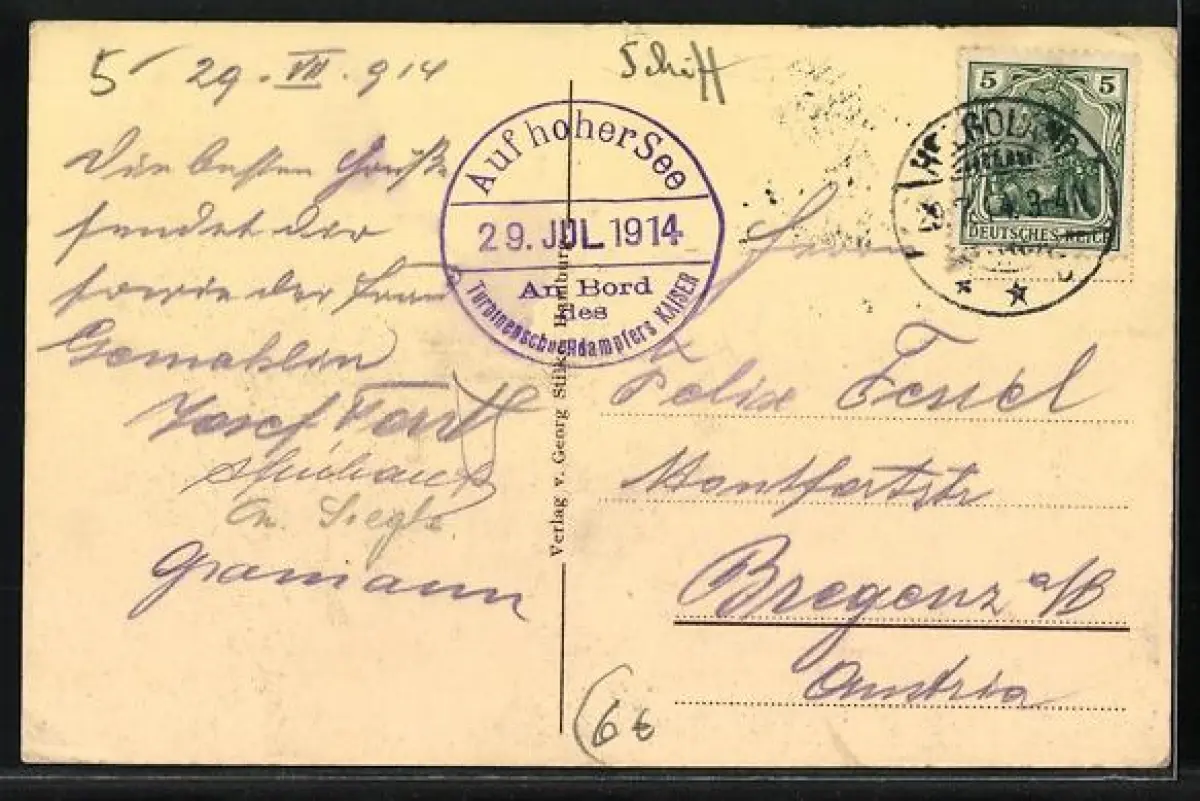 5
29. VII. 914
Schiff
Die besten Grüße
sendet dir
sowie der Frau
Gemahlin
Josef
An. Siegle
Gramann
Auf hoher See
29. JUL 1914
An Bord
des
Turbinenschnelldampfers KAISER
Verlag v. Georg Stilke, Hamburg
5 5
DEUTSCHES REICH
HELGOLAND
3-4
Herrn
Felix
Montfortstr
Bregenz a/B
Austria
6 t